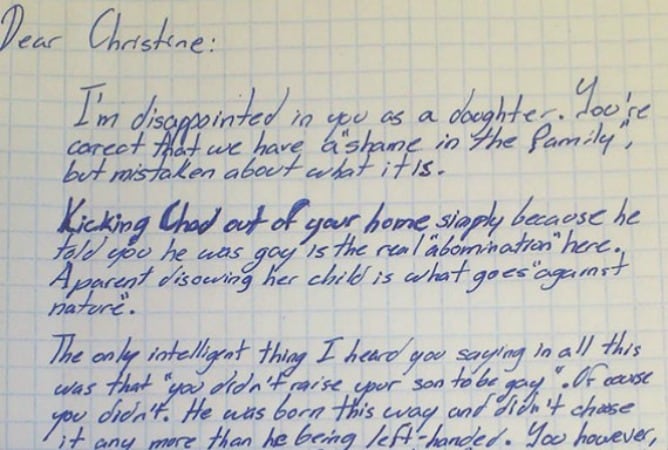 Dear Christine:
I'm disappointed in you as a daughter. You're
corect that we have a "shame in the family",
but mistaken about what it is.
Kicking Chad out of your home simply because he
told you he was gay is the real "abomination" here.
A parent disowing her child is what goes "against
nature".
The only intelligent thing I heard you saying in all this
was that "you didn't raise your son to be gay". Of course
you didn't. He was born this way and didn't choose
it any more than he being left-handed. You however,